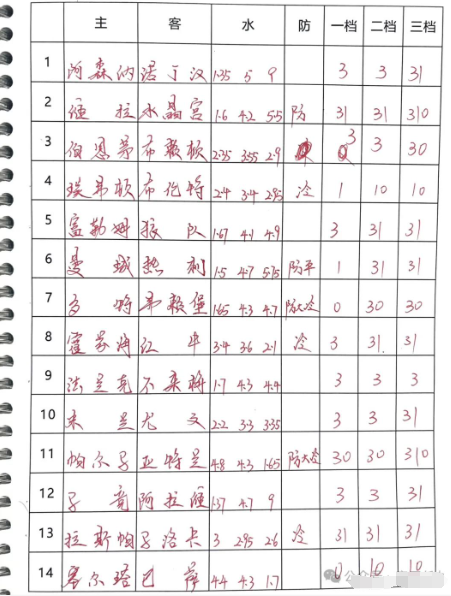 主 客 水 防 一档 二档 三档
1 阿森纳 诺丁汉 1·35 5 9 3 3 31
2 维拉 水晶宫 1·6 4·2 5·5 防 31 31 310
3 伯恩茅 布赖顿 2·35 3·55 2·9 3 3 30
4 埃弗顿 布伦特 2·4 3·4 2·95 冷 1 10 10
5 富勒姆 狼队 1·67 4·1 4·9 3 31 31
6 曼城 热刺 1·5 4·7 5·15 防平 1 31 31
7 多特 弗赖堡 1·65 4·3 4·7 防大冷 0 30 30
8 霍芬海 红牛 3·4 3·6 2·1 冷 3 31 31
9 法兰克 不来梅 1·7 4·3 4·4 3 3 3
10 米兰 尤文 2·2 3·3 3·35 3 3 31
11 帕尔马 亚特兰 4·8 4·3 1·65 防大冷 30 30 310
12 马竞 阿拉维 1·37 4·7 9 3 3 31
13 拉斯帕 马洛卡 3 2·95 2·6 冷 31 31 31
14 塞尔塔 巴萨 4·4 4·3 1·7 0 10 10
公众号